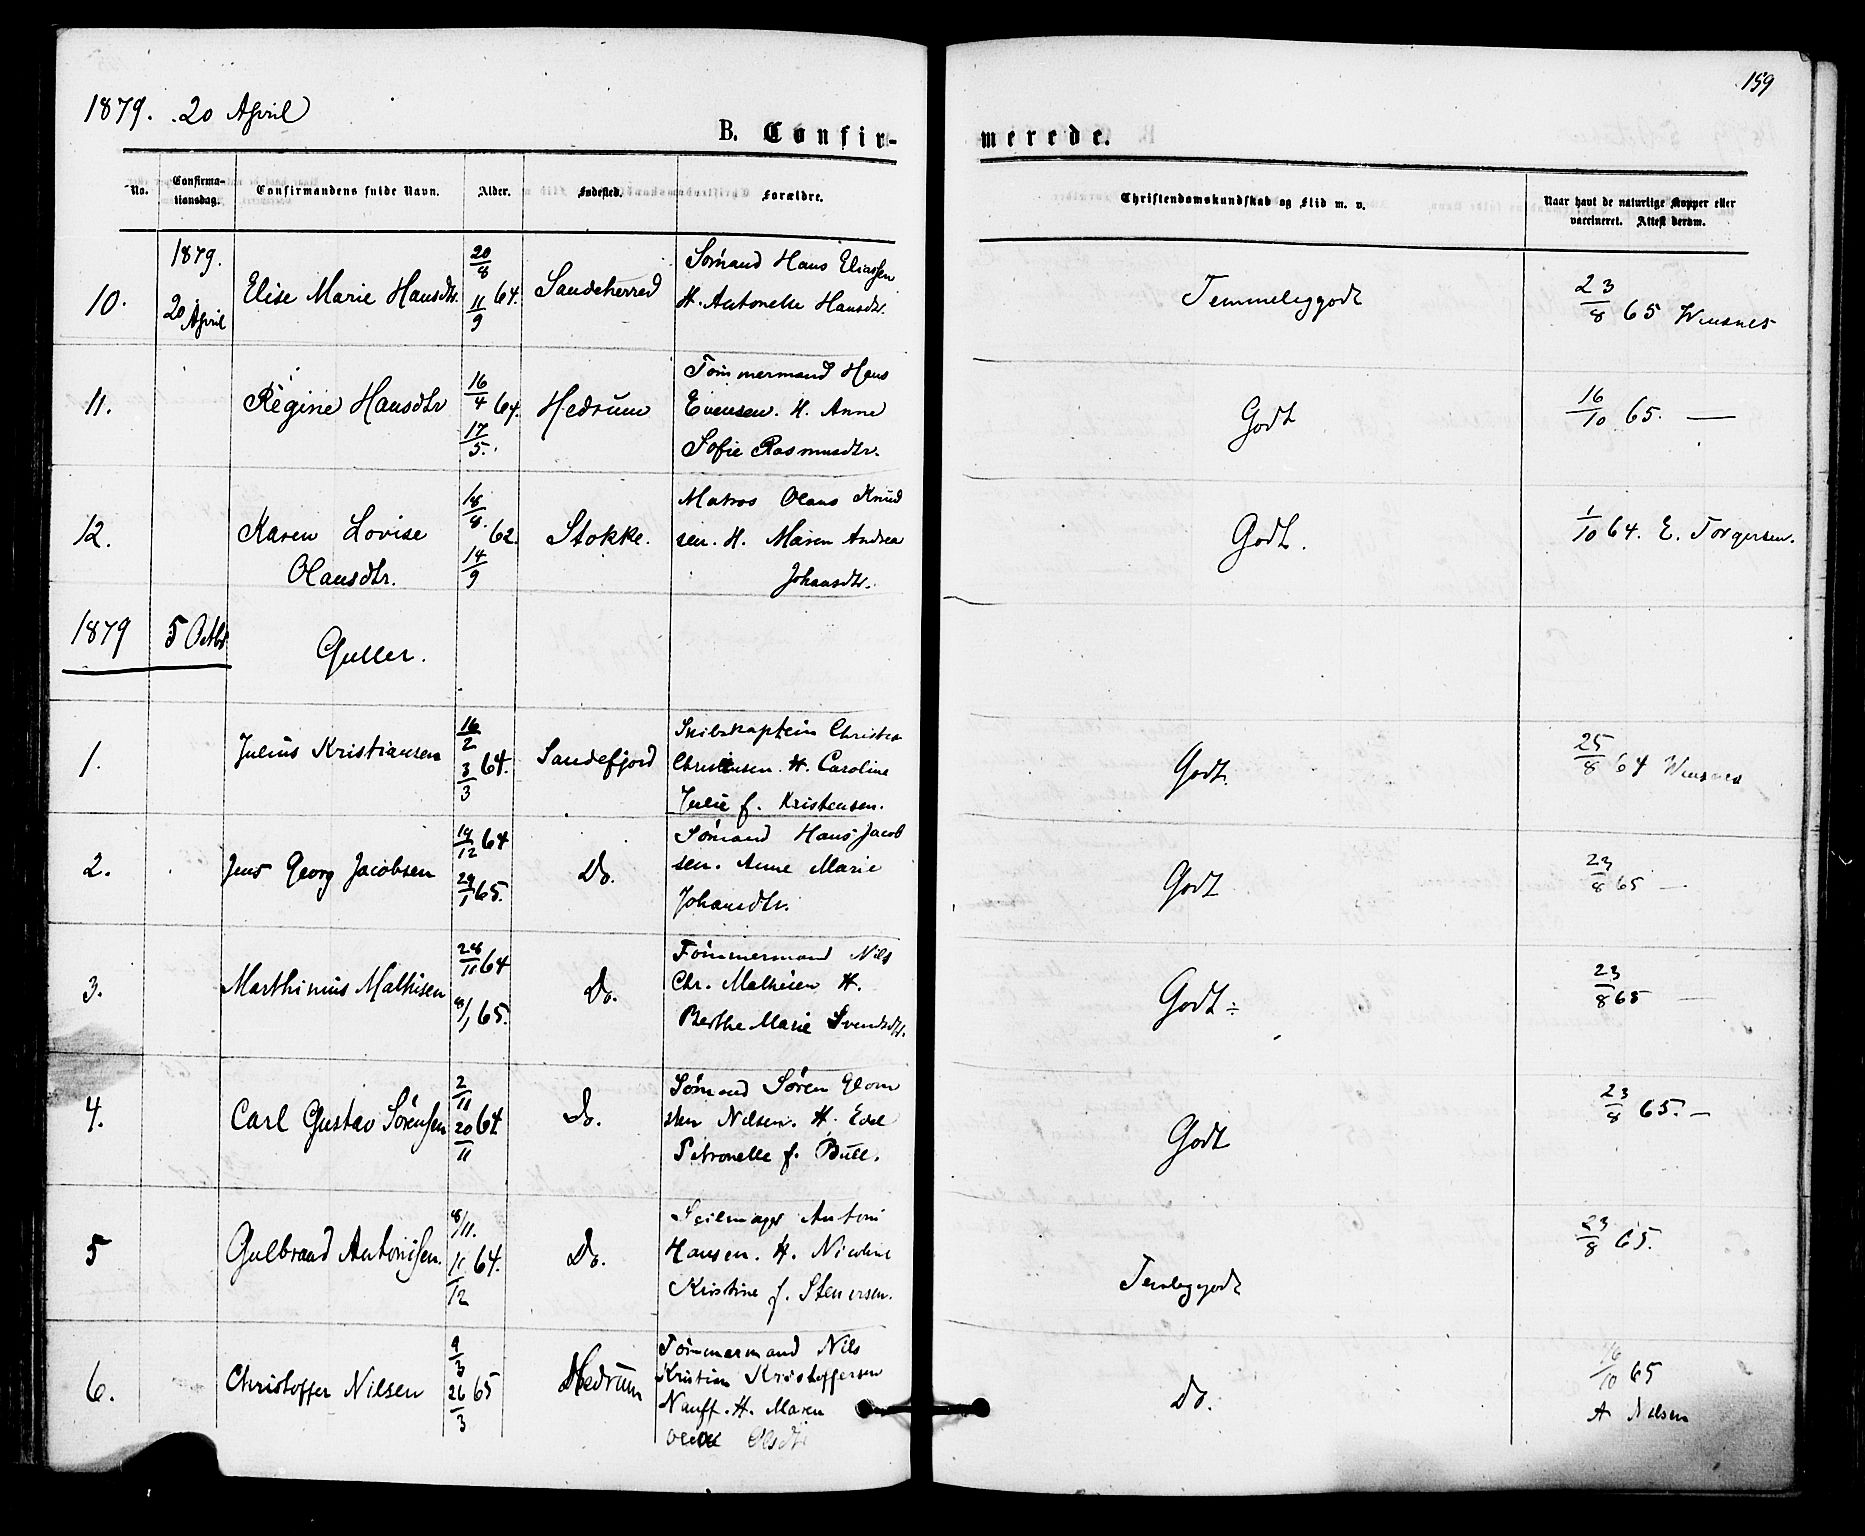 159
1879. 20 April
B. Confir-
merede.
No.
Confirma-
tionsdag.
Confirmandens fulde Navn.
Alder.
Fødested.
Forældre.
Christendomskundskab og Flid m. v.
Naar havt de naturlige Kopper eller
vaccineret. Attest derom.
10.
1879.
20 April
Elise Marie Hansdtr.
20/8 64.
11/9
Sandeherred
Sømand Hans Eliassen
H. Antonette Hansdtr.
Temmeliggodt
23/8 65 Winsnes
11.
Regine Hansdtr
16/4 64.
17/5.
Hedrum
Tømmermand Hans
Evensen. H. Anne
Sofie Rasmusdtr.
Godt
16/10 65. —
12.
Karen Lovise
Olausdtr.
18/8. 62.
14/9
Stokke.
Matros Olaus Knud
sen. H. Maren Andrea
Johansdtr.
Godt.
1/10 64. E. Torgersen.
1879 5 Octbr
Gutter.
1.
Julius Kristiansen
16/2 64.
3/3
Sandefjord
Skibskaptein Christen
Christensen. H. Caroline
Julie f. Kristensen.
Godt.
25/8 64 Winsnes
2.
Jens Georg Jacobsen
14/12 64
29/1 65.
Do.
Sømand Hans Jacob
sen. Anne Marie
Johansdtr.
Godt
23/8 65 —
3.
Marthinius Mathisen
28/11 64
8/1 65.
Do.
Tømmermand Nils
Chr. Mathisen H.
Berthe Marie Svendsdtr.
Godt ÷
23/8 65 —
4.
Carl Gustav Sørensen
2/11 64
20/11
Do.
Sømand Søren
Nilsen. H.
Petronelle f. Bull.
Godt
23/8 65. —
5
Gulbrand Antonisen.
8/11.
11/12 64.
Do.
Seilmager Anton
Hansen. H. Nicoline
Kristine f. Stenersen.
Temliggodt
23/8 65.
6.
Christoffer Nilsen
9/3 65
26/3
Hedrum
Tømmermand Nils
Kristian Kristoffersen
Nauff. H. Maren
Olsdtr
Do.
16/10 65
A Nilsen